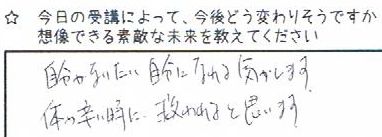 ☆ 今日の受講によって、今後どう変わりそうですか
想像できる素敵な未来を教えてください
自分がなりたい自分になれる気がします
体の辛い時に、救われると思います